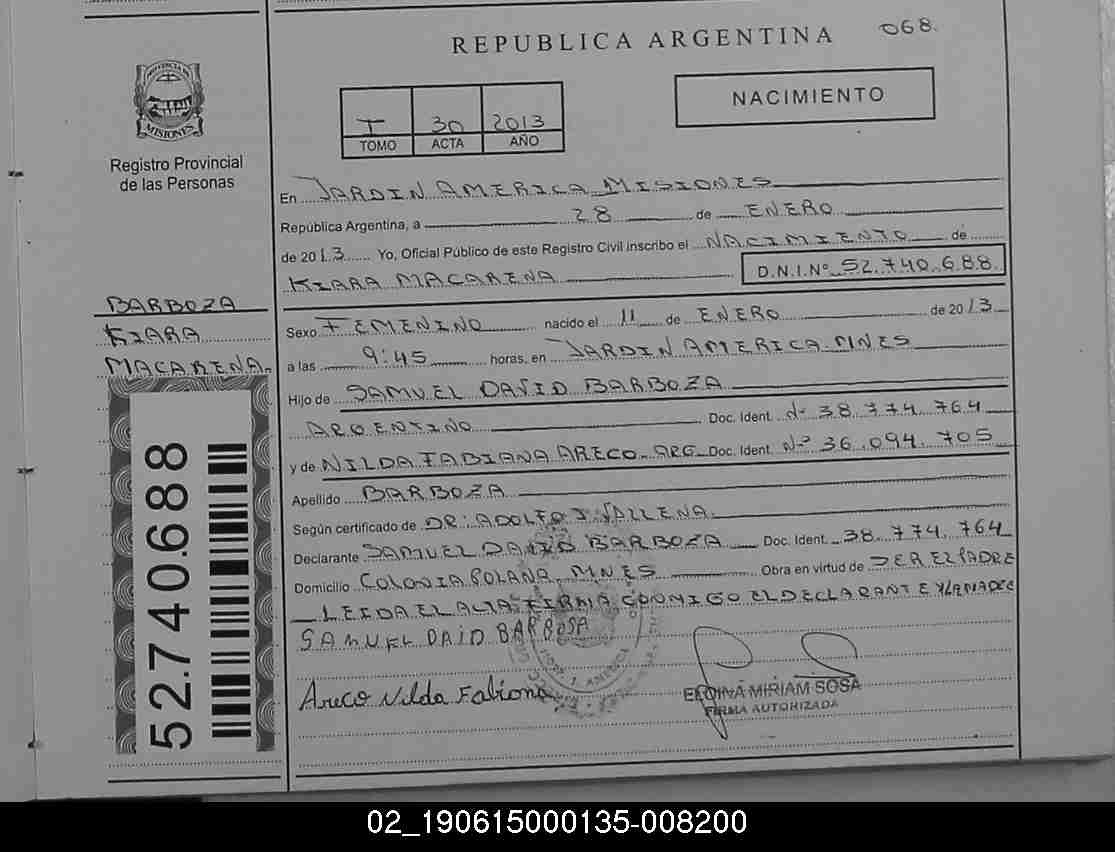 REPUBLICA ARGENTINA
068.
PROVINCIA DE
MISIONES
Registro Provincial
de las Personas
T 30 2013
TOMO ACTA AÑO
NACIMIENTO
En JARDIN AMERICA MISIONES
República Argentina, a 28 de ENERO
de 2013 Yo, Oficial Público de este Registro Civil inscribo el NACIMIENTO de
KIARA MACARENA D.N.I.Nº 52.740.688
BARBOZA
KIARA
MACARENA.
52.740.688
Sexo FEMENINO nacido el 11 de ENERO de 2013
a las 9:45 horas, en JARDIN AMERICA MNES
Hijo de SAMUEL DAVID BARBOZA
ARGENTINO Doc. Ident. Nº 38.774.764
y de NILDA FABIANA ARECO. ARG Doc. Ident. Nº 36.094.705
Apellido BARBOZA
Según certificado de DR: ADOLFO J VALLENA.
Declarante SAMUEL DAVID BARBOZA Doc. Ident. 38.774.764
Domicilio COLONIA POLANA, MNES Obra en virtud de SER EL PADRE
LEIDA EL ACTA FIRMA CONMIGO EL DECLARANTE Y LA MADRE
SAMUEL DAID BARBOSA
Areco Nilda Fabiana
ELOINA MIRIAM SOSA
FIRMA AUTORIZADA
02_190615000135-008200